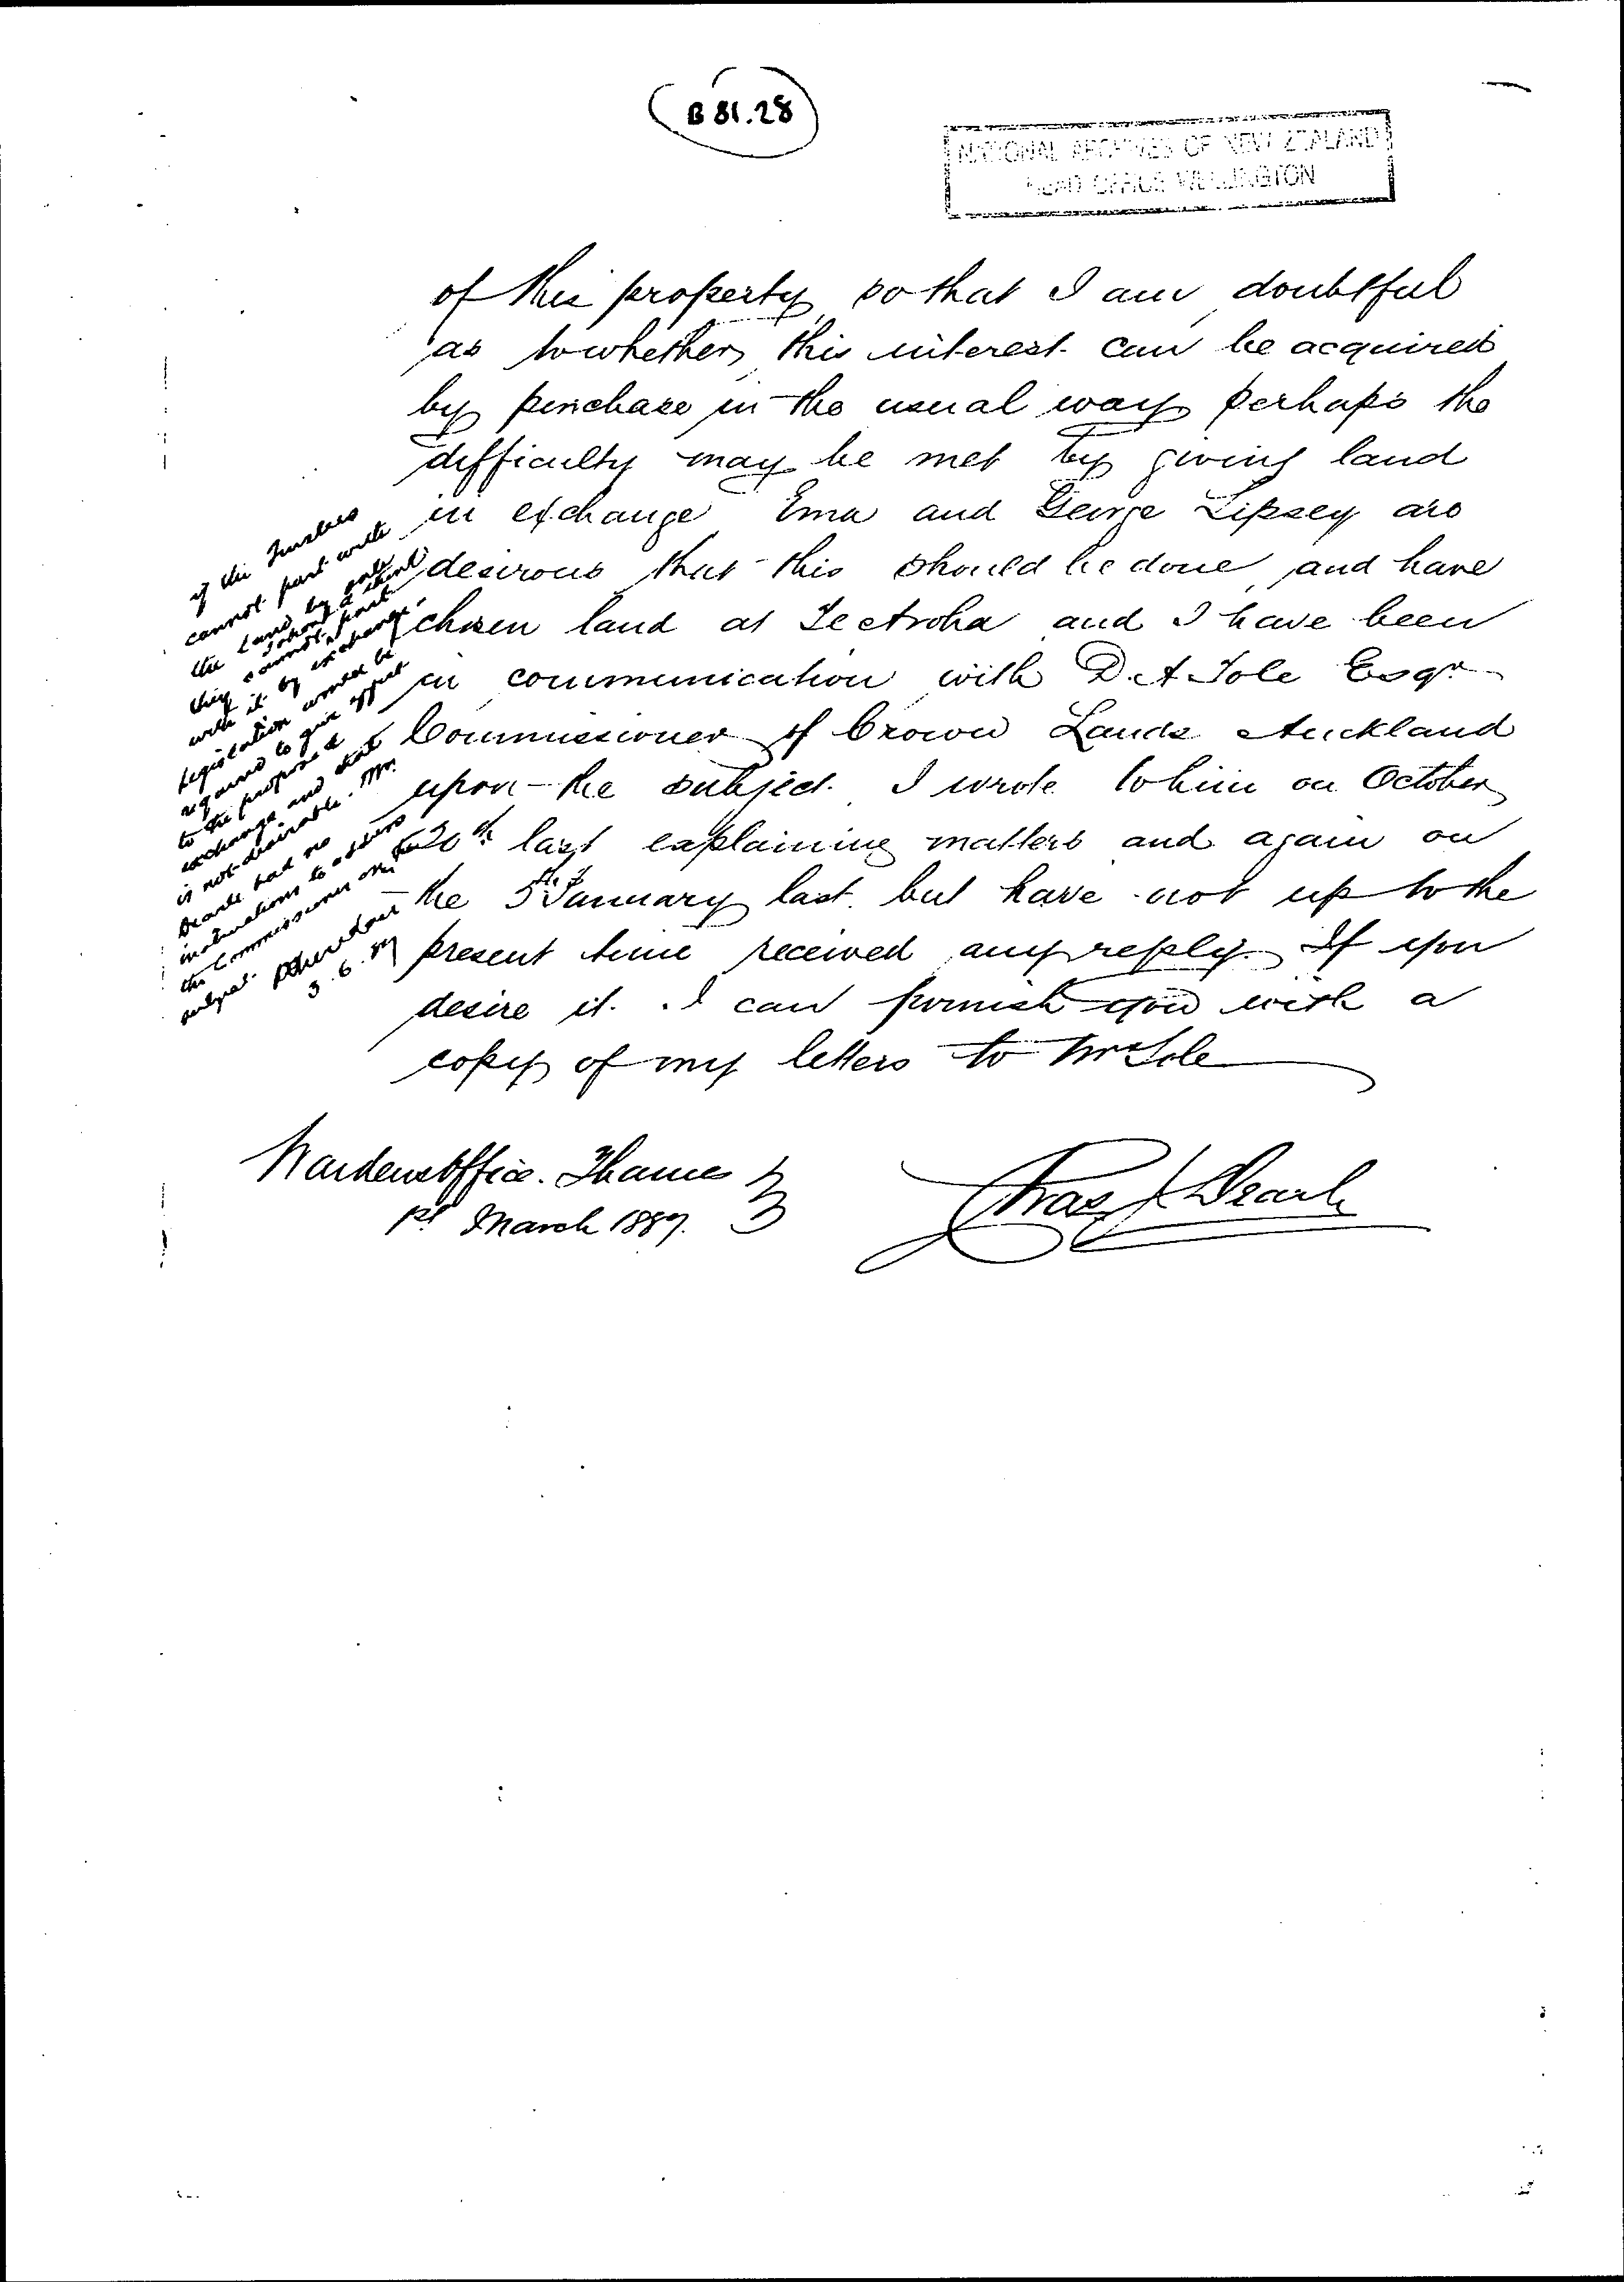 B 81.28
NATIONAL ARCHIVES OF NEW ZEALAND
HEAD OFFICE WELLINGTON
of this property so that I am doubtful
as to whether this interest can be acquired
by purchase in the usual way perhaps the
difficulty may be met by giving land
in exchange Ema and George Lipsey are
desirous that this should be done, and have
chosen land at Te Aroha and I have been
in communication with D. A Tole Esqr
Commissioner of Crown Lands Auckland
upon the subject. I wrote to him on October
20th last explaining matters and again on
the 5th January last. but have not up to the
present time received any reply. If you
desire it. I can furnish you with a
copy of my letters to Mr Tole
Wardens Office. Thames
1st March 1889.
Chas J Dearle
if the Trustees
cannot part with
the land by sale
I think
they cannot part
with it by exchange
Legislation would be
required to give effect
to the proposed
exchange and that
is not desirable. Mr.
Dearle had no
instructions to address
the Commissioner on the
subject.
3.6.89